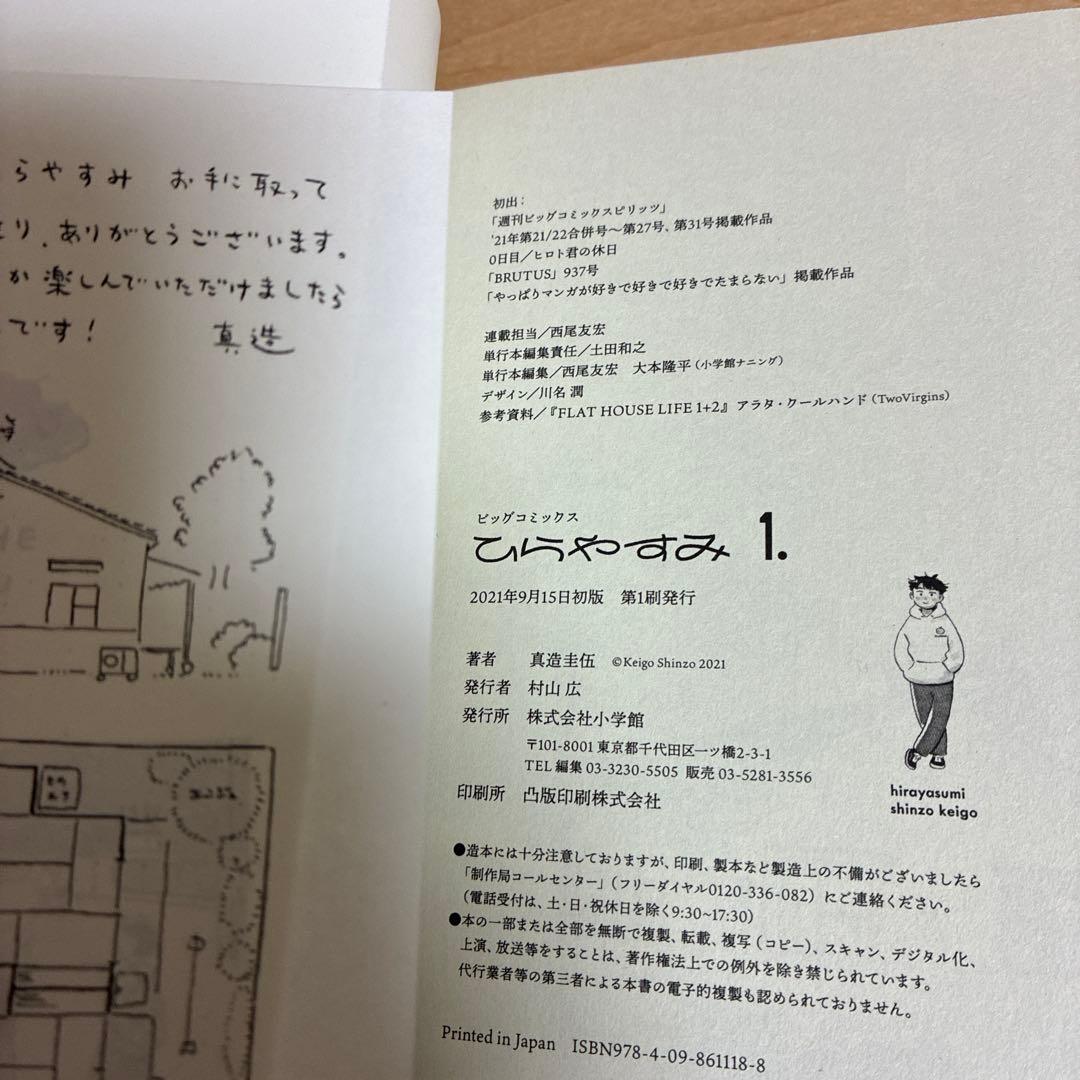 らやすみ お手に取って
り、ありがとうございます。
か楽しんでいただけましたら
です! 真造
初出:
「週刊ビッグコミックスピリッツ」
'21年第21/22合併号〜第27号、第31号掲載作品
0日目／ヒロト君の休日
「BRUTUS」937号
「やっぱりマンガが好きで好きで好きでたまらない」掲載作品
連載担当／西尾友宏
単行本編集責任／土田和之
単行本編集／西尾友宏 大本隆平(小学館ナニング)
デザイン／川名 潤
参考資料／『FLAT HOUSE LIFE 1+2』アラタ・クールハンド(TwoVirgins)
ビッグコミックス
ひらやすみ 1.
2021年9月15日初版 第1刷発行
著者 真造圭伍 ©Keigo Shinzo 2021
発行者 村山 広
発行所 株式会社小学館
〒101-8001 東京都千代田区一ツ橋2-3-1
TEL 編集 03-3230-5505 販売 03-5281-3556
印刷所 凸版印刷株式会社
hirayasumi
shinzo keigo
●造本には十分注意しておりますが、印刷、製本など製造上の不備がございましたら
「制作局コールセンター」(フリーダイヤル0120-336-082)にご連絡ください。
(電話受付は、土・日・祝休日を除く9:30~17:30)
●本の一部または全部を無断で複製、転載、複写(コピー)、スキャン、デジタル化、
上演、放送等をすることは、著作権法上での例外を除き禁じられています。
代行業者等の第三者による本書の電子的複製も認められておりません。
Printed in Japan ISBN978-4-09-861118-8